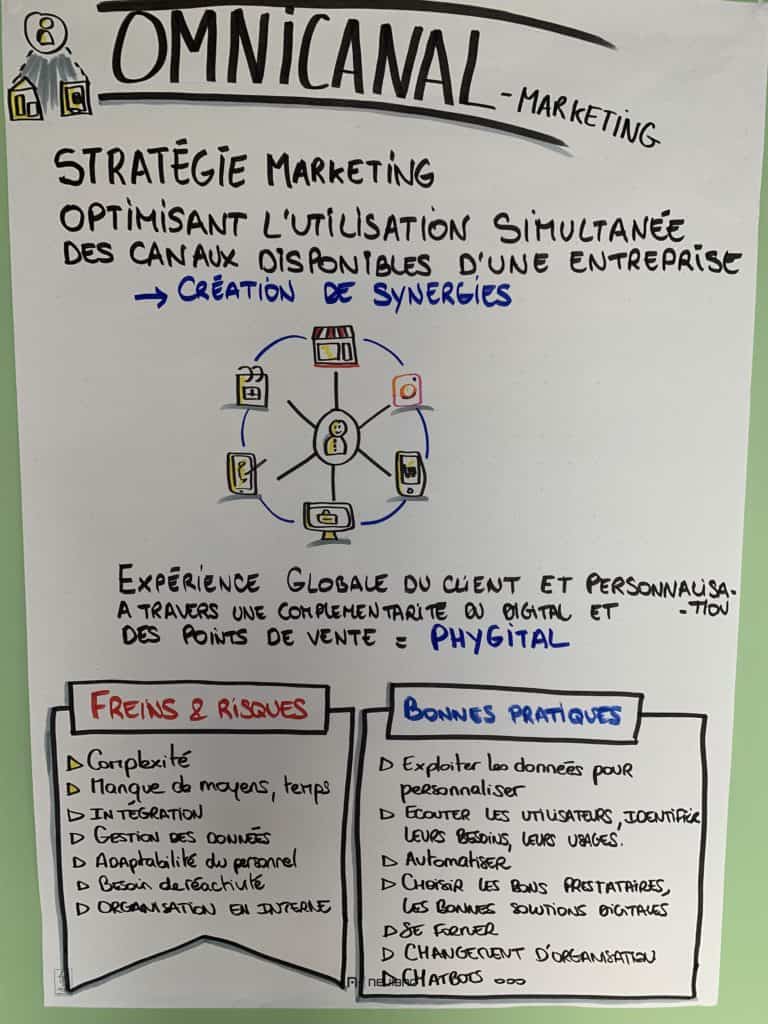 OMNICANAL - MARKETING
STRATÉGIE MARKETING
OPTIMISANT L'UTILISATION SIMULTANÉE
DES CANAUX DISPONIBLES D'UNE ENTREPRISE
→ CRÉATION DE SYNERGIES
EXPÉRIENCE GLOBALE DU CLIENT ET PERSONNALISA-
A TRAVERS UNE COMPLEMENTARITE DU DIGITAL ET -TION
DES POINTS DE VENTE = PHYGITAL
FREINS & RISQUES
▷ Complexité
▷ Manque de moyens, temps
▷ INTÉGRATION
▷ GESTION DES DONNÉES
▷ Adaptabilité du personnel
▷ Besoin de réactivité
▷ ORGANISATION EN INTERNE
BONNES PRATIQUES
▷ Exploiter les données pour
personnaliser
▷ ECOUTER LES UTILISATEURS, IDENTIFIER
LEURS BESOINS, LEURS USAGES.
▷ Automatiser
▷ CHOISIR LES BONS PRESTATAIRES,
LES BONNES SOLUTIONS DIGITALES
▷ SE FORMER
▷ CHANGEMENT D'ORGANISATION
▷ CHATBOTS ...